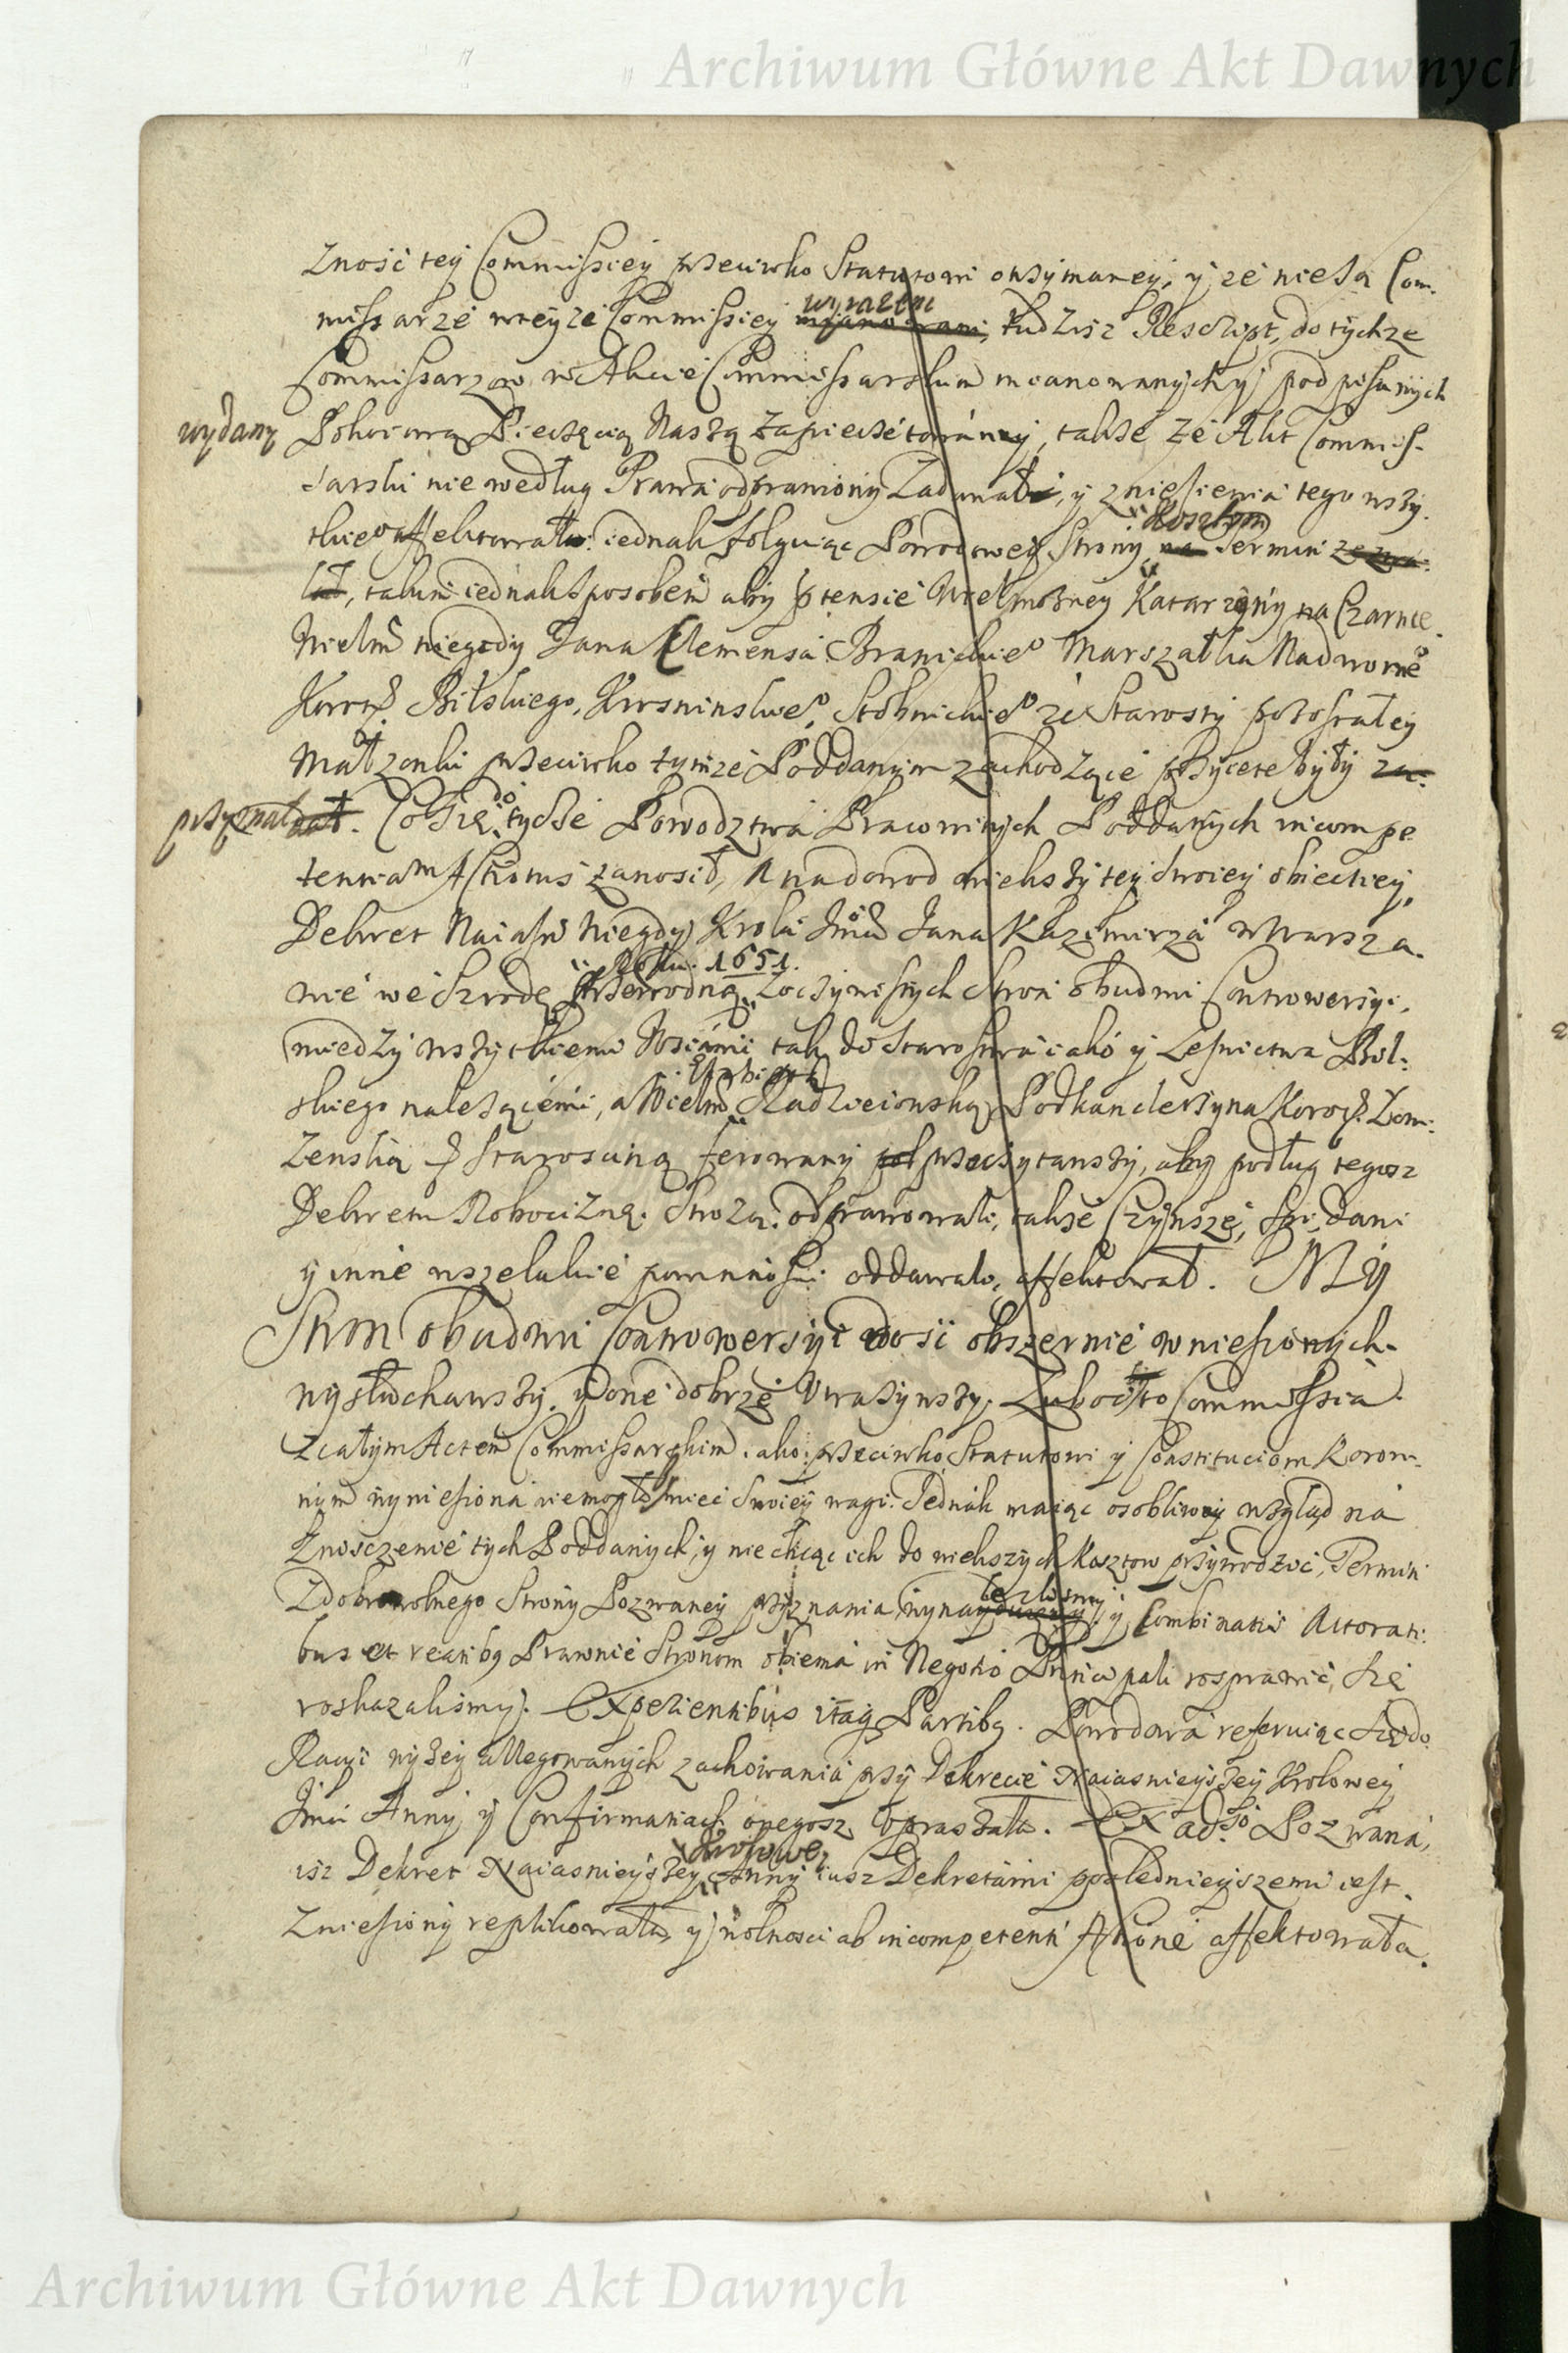 Archiwum Główne Akt Dawnych
zność tey Commissiey przeciwko Statutowi otrzymaney, y że nie są Com-
missarze wteyże Commissiey mianowani, wyrażeni tudzisz Reskrypt, do tychże
Commissarzow w Akcie Commissarskim mianowanych y podpisanych
wydany Pokoiową Pieczęcią Naszą zapieczętowany, takze że Akt Commis-
sarski nie według Prawa odprawiony Zadawał, y zniesienia tego wszy-
tkieo affektował: iednak folguiąc Powodowey Strony na Termin
takim iednak sposobem aby ptensie Wielmożney Katarzyny na Czarnce
Wielm niegdy Jana Klemensa Branickieo Marszałka Nadworneo
Koron Bilskiego, Krosninskieo, Stobnickieo ze Starosty pozostałey
Małzonki przeciwko tymże Poddanym zachodzące przyięte były
przyznał. Co się do tycze Powodztwa Pracowitych Poddanych incompe
tentiam Actionis zanosił, A na dowod wiekszy tey swoiey obiectiey,
Dekret Naiasń Niegdy Krola Jmci Jana Kazimierza w Warsza-
wie we Szrodę Roku 1651. Zoczywistych Stron obudwu Controwersyi,
miedzy wszytkiemi Wsiami tak do Starostwa iako y Lesnictwa Biel-
skiego należącemi, a Wielm Elzbietą Radzieiowską Podkanclerzyna Koroń. Łom-
zenską Starosciną ferowany przeczytawszy, aby podług tegosz
Dekretu Robociznę. Strożą. odprawowali, także Czynsze, Spi, dani
y inne wszelakie powinnosci oddawali, affektował. My
Stron obudwu Controwersyi dosi obszernie wniesionych
wysłuchawszy, y one dobrze Uwazywszy, Lubo ta Commissia
z całym Actem Commissarskim, iako przeciwko Statutowi y Constituciom Koron-
nym wyniesiona niemogła mieć swoiey wagi. Jednak maiąc osobliwy wzgląd na
Zniszczenie tych Poddanych, y nie chcąc ich do wiekszych Kosztow przywodzić, Termin
Z dobrowolnego Strony Pozwaney przyznania, y Combinatis Actorati-
bus et reatibq Prawnie Stronom obiema in Negotio Principali rosprawić się
roskazalismy. Experientibus itaq Partibq. Powodowa referuiąc się do
Racyi wyzey allegowanych zachowania przy Dekrecie Naiasnieyszey Krolowey
Jmci Anny y Confirmatiach onegosz upraszała. Ex adso Pozwana,
isz Dekret Naiasnieyszey Krolowey Anny iusz Dekretami poslednieyszemi iest
Zniesiony replikowała, y wolnosci ab incompetenti Actione affektowała.
Archiwum Główne Akt Dawnych